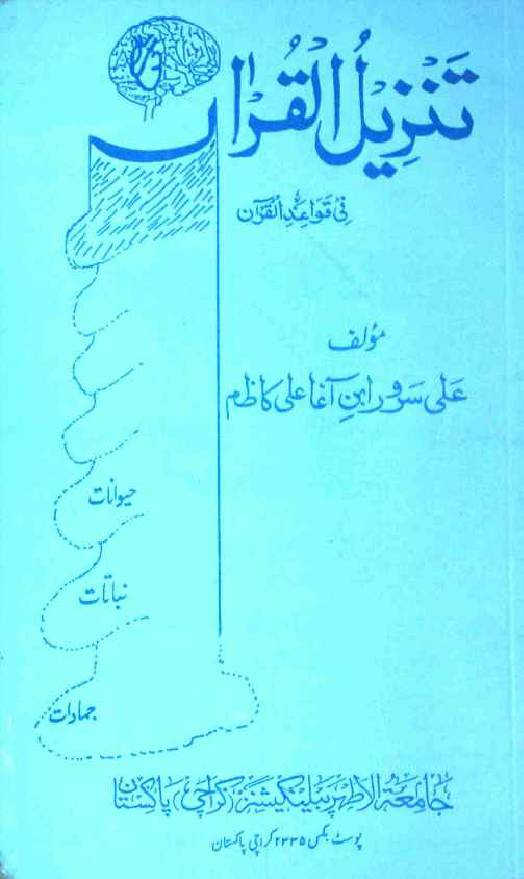 تَنْزِیْلُ الْقُرْاٰن
فِیْ قَوَاعِدِ الْقُرْآن
مؤلف
علی سرور ابنِ آغا علی کاظم
حیوانات
نباتات
جمادات
جَامِعَۃُ الاطہر پبلیکیشنز (کراچی) پاکستان
پوسٹ بکس ۲۲۳۵ کراچی پاکستان